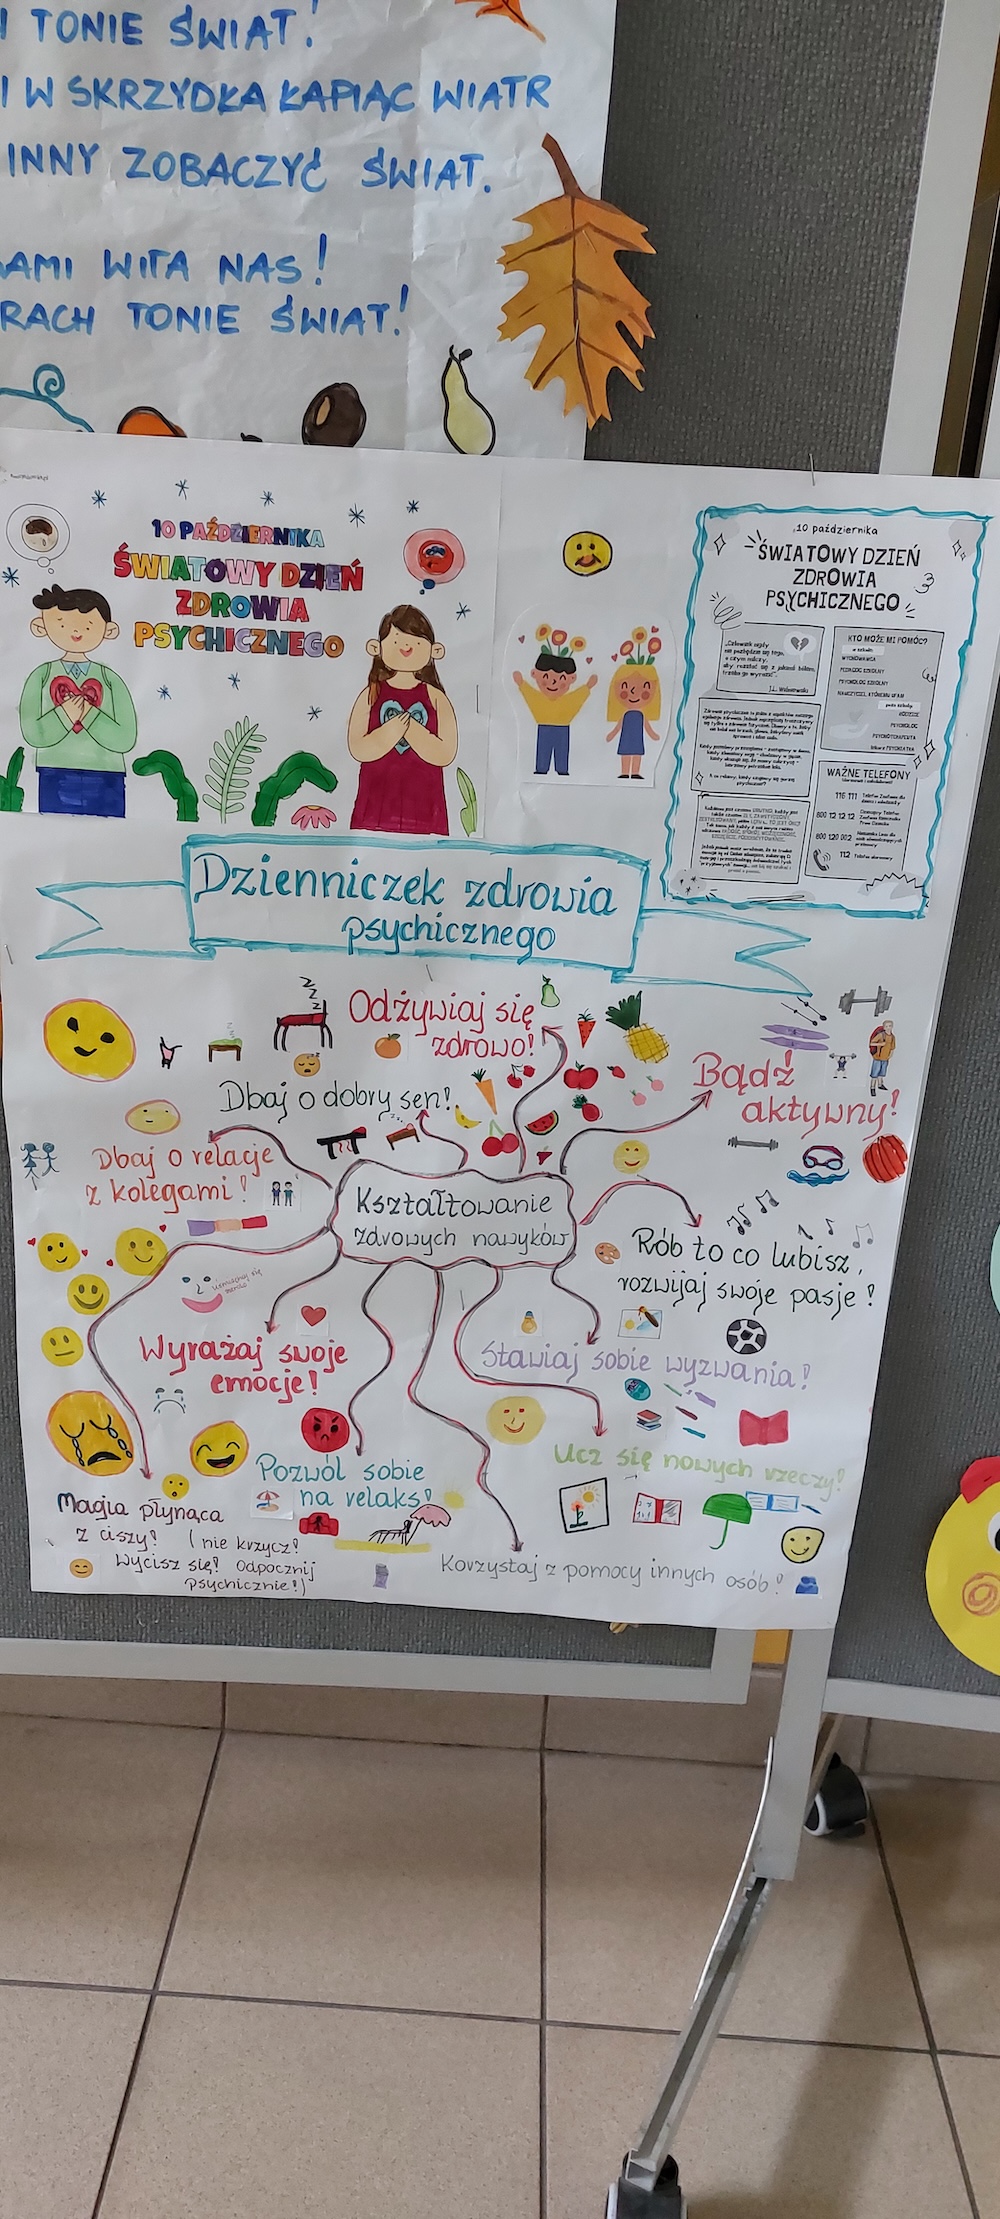 TONIE ŚWIAT!
I W SKRZYDŁA ŁAPIĄC WIATR
INNY ZOBACZYĆ ŚWIAT.
AMI WITA NAS!
RACH TONIE ŚWIAT!
10 PAŹDZIERNIKA
ŚWIATOWY DZIEŃ
ZDROWIA
PSYCHICZNEGO
10 października
ŚWIATOWY DZIEŃ
ZDROWIA
PSYCHICZNEGO
„Człowiek nigdy
nie pozbędzie się tego,
o czym milczy.
J.L. Wiśniewski
KTO MOŻE MI POMÓC?
w szkole:
WYCHOWAWCA
PEDAGOG SZKOLNY
PSYCHOLOG SZKOLNY
NAUCZYCIEL, KTÓREMU UFAM
poza szkołą:
RODZICE
PSYCHOLOG
PSYCHOTERAPEUTA
lekarz PSYCHIATRA
WAŻNE TELEFONY
116 111 Telefon Zaufania dla
dzieci i młodzieży
800 12 12 12 Dziecięcy Telefon
Zaufania Rzecznika
Praw Dziecka
800 120 002
112 Telefon alarmowy
Dzienniczek zdrowia
psychicznego
Odżywiaj się
zdrowo!
Bądź
aktywny!
Dbaj o dobry sen!
Dbaj o relacje
z kolegami!
Kształtowanie
zdrowych nawyków
Rób to co lubisz,
rozwijaj swoje pasje!
Uśmiechaj się
Wyrażaj swoje
emocje!
Stawiaj sobie wyzwania!
Ucz się nowych rzeczy!
Pozwól sobie
na relaks!
Magia płynąca
z ciszy! (nie krzycz!
Wycisz się! Odpocznij
psychicznie!)
Korzystaj z pomocy innych osób!